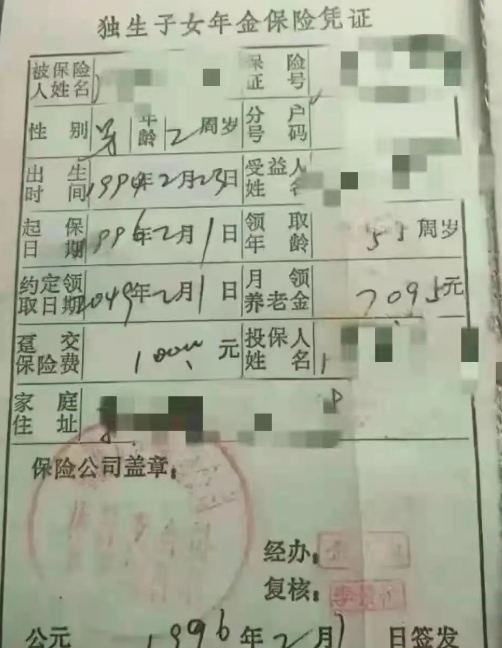 独生子女年金保险凭证
被保险人姓名 保险证号
性别 男 年龄 2周岁 分户号码
出生时间 1994年2月23日 受益人姓名
起保日期 1996年2月1日 领取年龄 55周岁
约定领取日期 2049年2月1日 月领养老金 709.5元
趸交保险费 1000元 投保人姓名
家庭住址
保险公司盖章:
经办:
复核:
公元 1996年2月 日签发